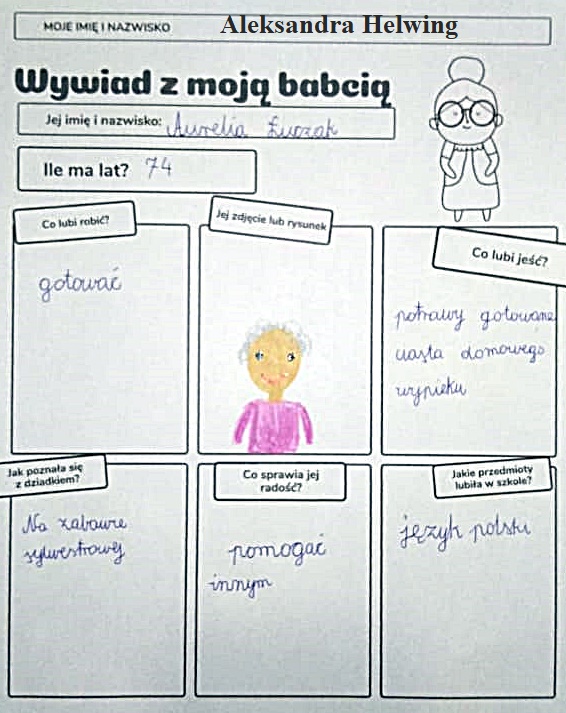 MOJE IMIĘ I NAZWISKO Aleksandra Helwing
Wywiad z moją babcią
Jej imię i nazwisko: Aurelia Łuczak
Ile ma lat? 74
Co lubi robić?
gotować
Jej zdjęcie lub rysunek
Co lubi jeść?
potrawy gotowane
ciasta domowego
wypieku
Jak poznała się
z dziadkiem?
Na zabawie
sylwestrowej
Co sprawia jej
radość?
pomogać
innym
Jakie przedmioty
lubiła w szkole?
język polski